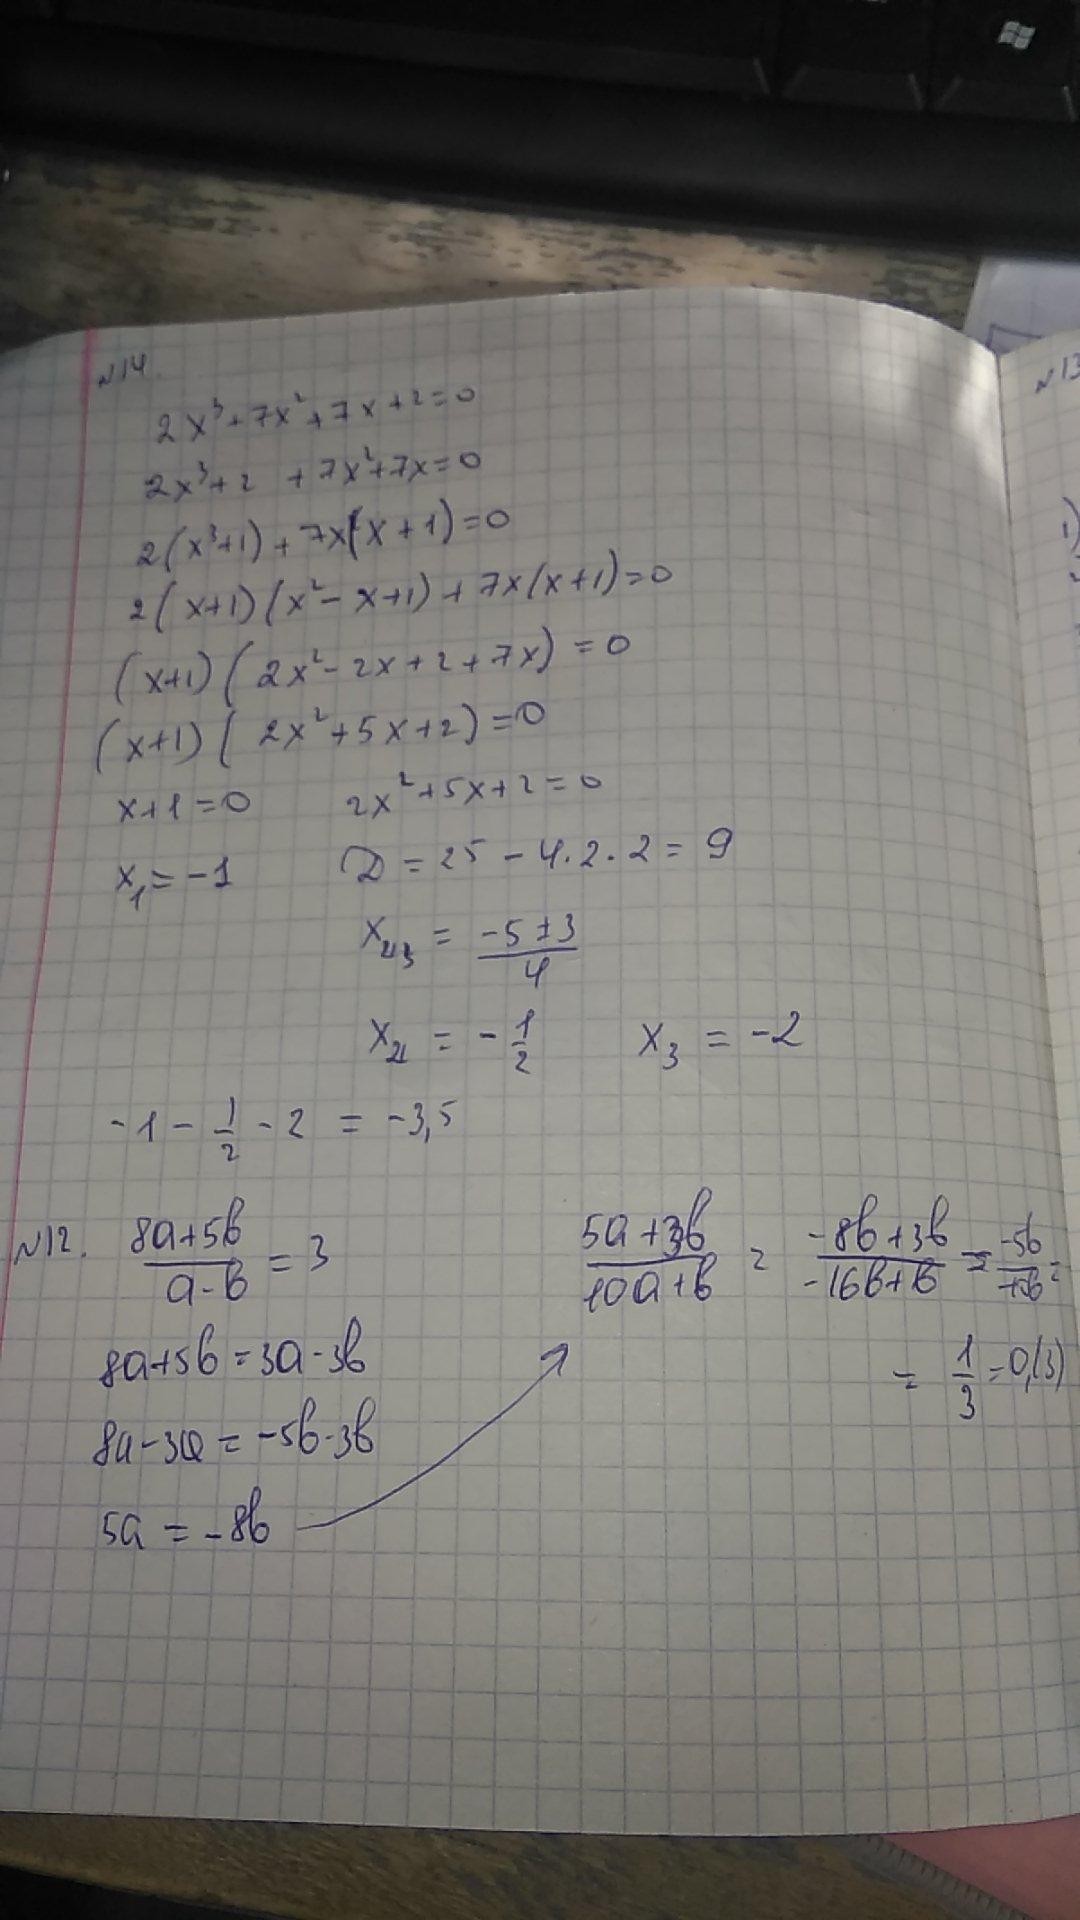 №14.
2x³+7x²+7x+2=0
2x³+2 +7x²+7x=0
2(x³+1)+7x(x+1)=0
2(x+1)(x²-x+1)+7x(x+1)=0
(x+1)(2x²-2x+2+7x)=0
(x+1)(2x²+5x+2)=0
x+1=0 2x²+5x+2=0
x₁=-1 D=25-4·2·2=9
x₂,₃ = (-5±3)/4
x₂ = -1/2 x₃ = -2
-1-1/2-2 = -3,5
№12. (8a+5b)/(a-b) = 3 (5a+3b)/(10a+b) = (-8b+3b)/(-16b+b) = -5b/-15b =
8a+5b=3a-3b = 1/3 =0,(3)
8a-3a=-5b-3b
5a=-8b
№13
1)